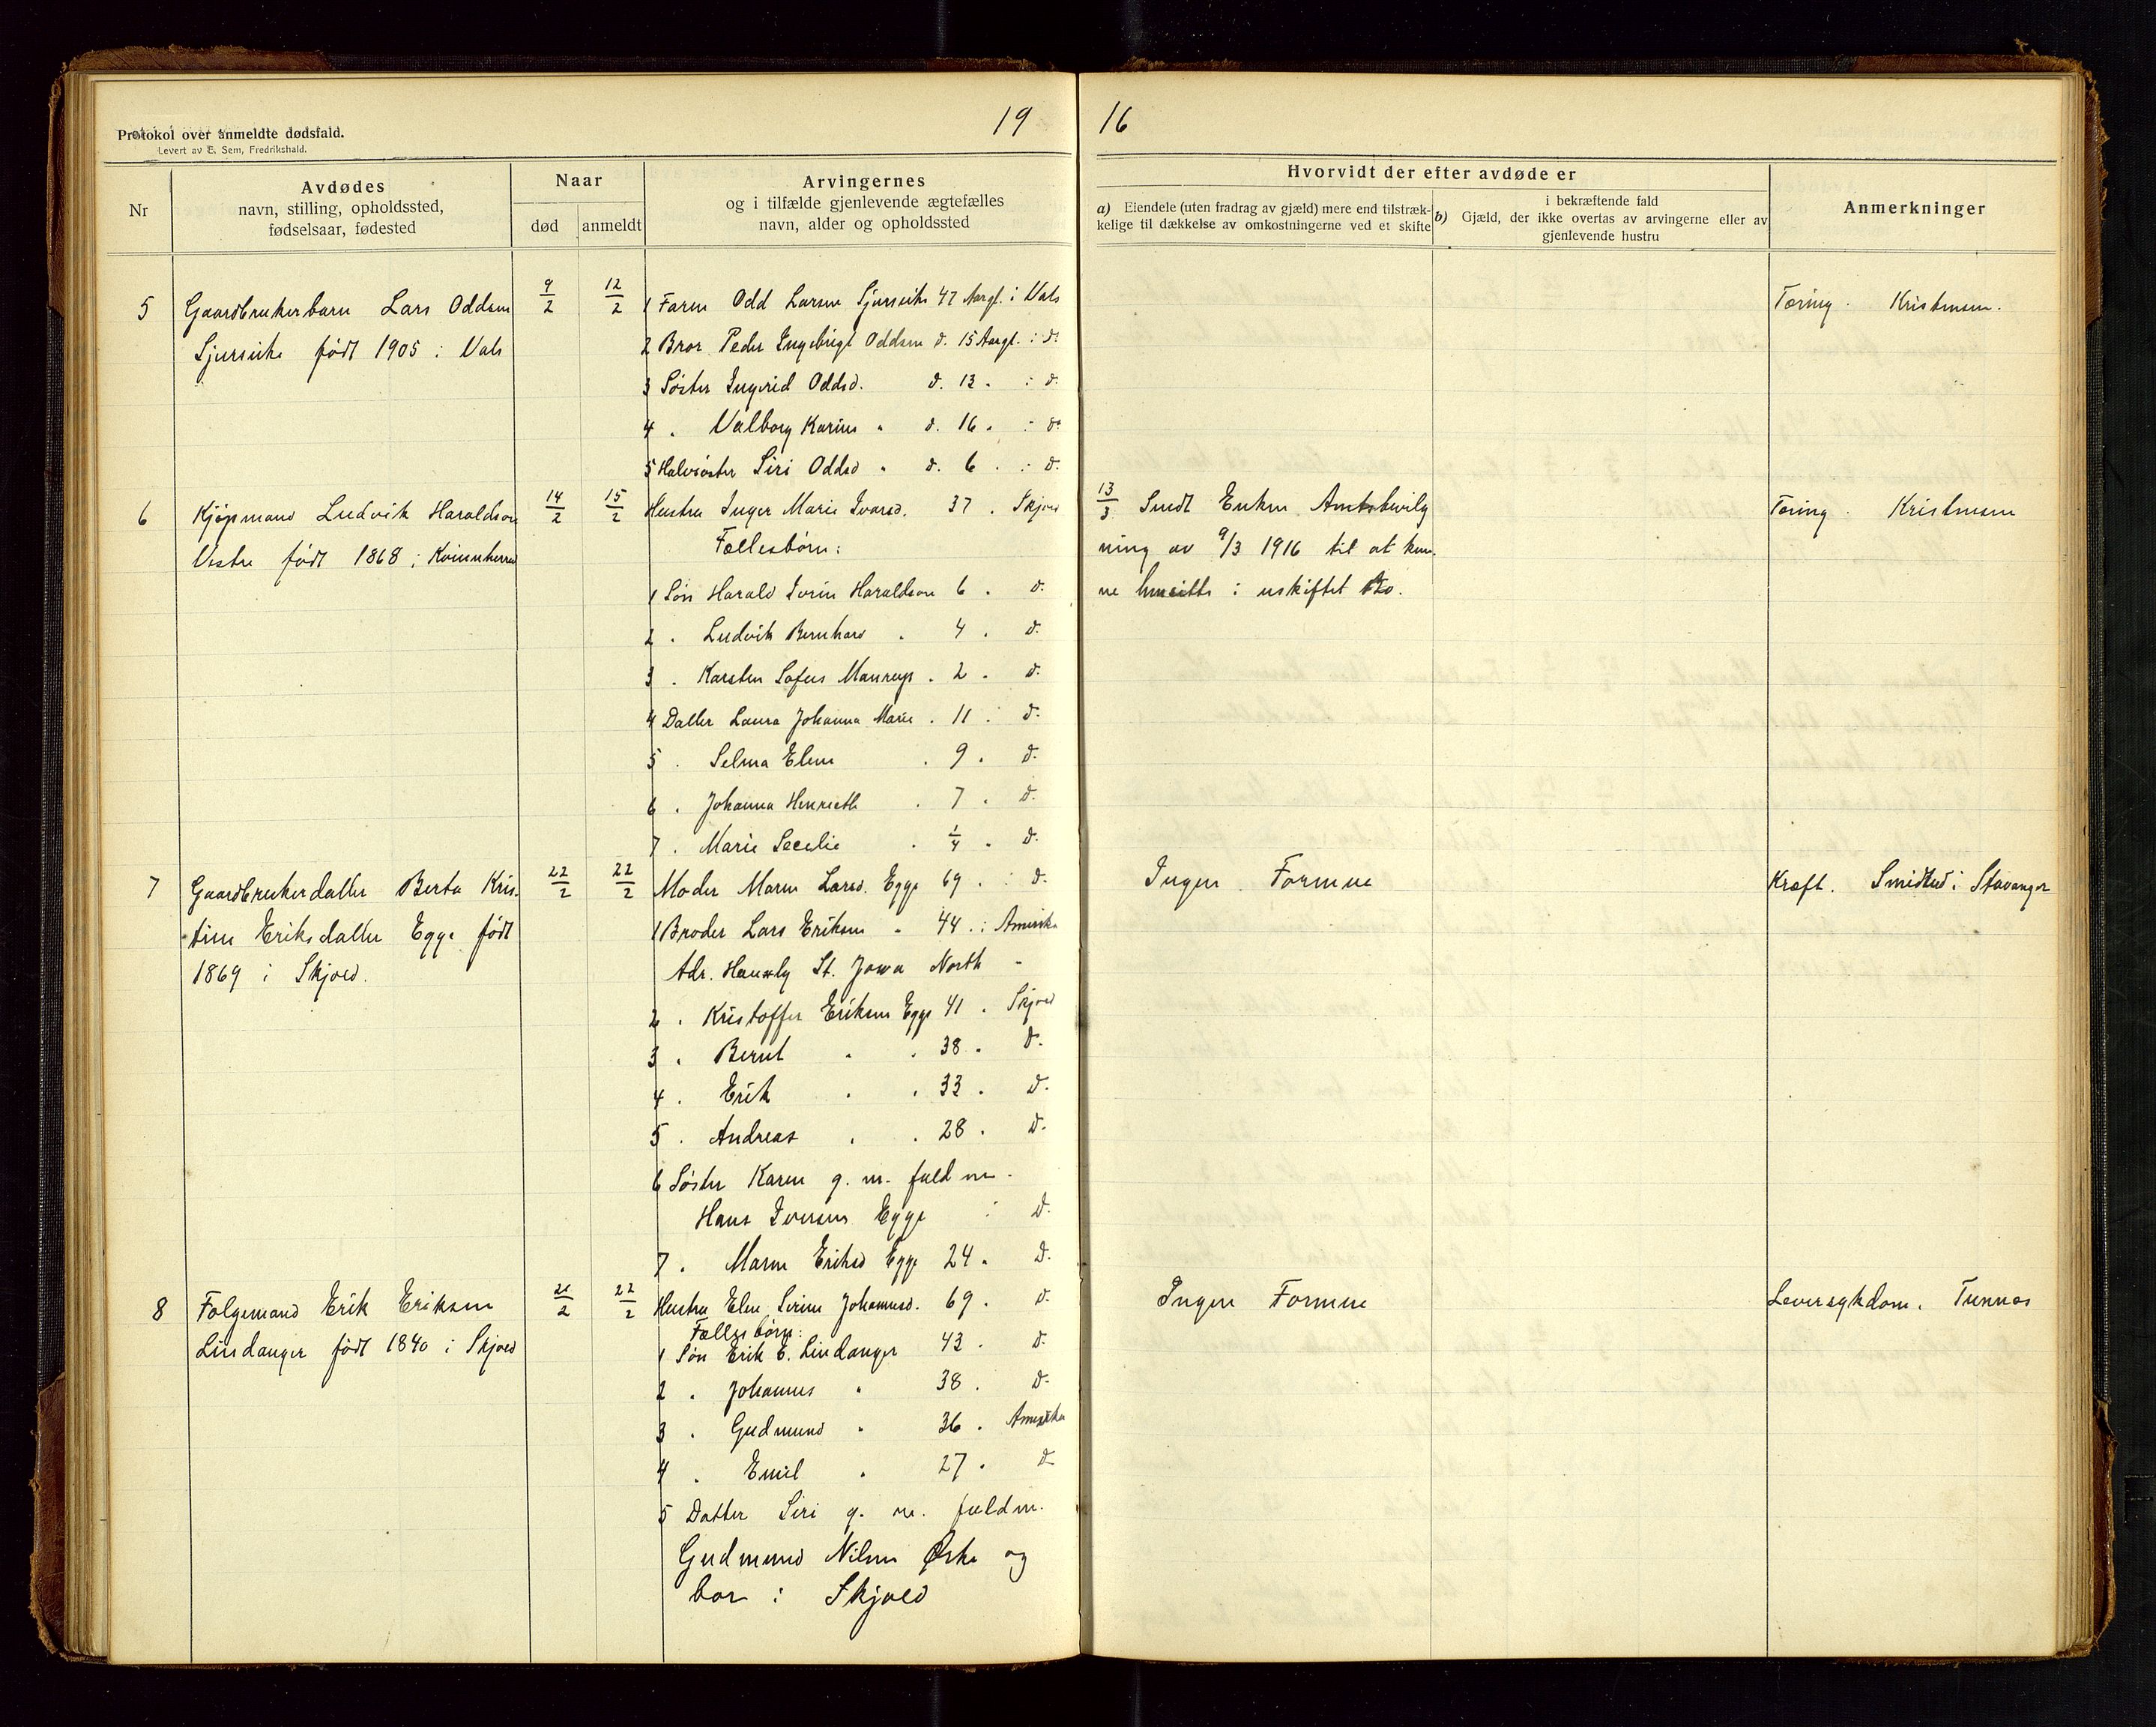 19
16
Protokol over anmeldte dødsfald.
Levert av E. Sem, Fredrikshald.
Nr
Avdødes
navn, stilling, opholdssted,
fødselsaar, fødested
Naar
død
anmeldt
Arvingernes
og i tilfælde gjenlevende ægtefælles
navn, alder og opholdssted
Hvorvidt der efter avdøde er
a) Eiendele (uten fradrag av gjæld) mere end tilstræk-
kelige til dækkelse av omkostningerne ved et skifte
i bekræftende fald
b) Gjæld, der ikke overtas av arvingerne eller av
gjenlevende hustru
Anmerkninger
5 Gaardbrukerbarn Lars Oddsen 9/2 12/2
født 1905 i Vats
1 Faren Odd Larsen 47 Aargl. i Vats
2 Bror Peder Ingebrigt Oddsen d. 15 Aargl. i do
3 Søster Ingerid Oddsd. d. 13 " i d.
4 " Valborg Karine " d. 16 " i do
5 Halvsøster Siri Oddsd " d. 6 " i d.
Tæring. Kristensen.
6 Kjøpmand Ludvik Haraldson 14/2 15/2
Vestre født 1868 i Kvinnherred
Hustru Inger Marie Ivarsd. 37 . Skjold
Fællesbørn:
1 Søn Harald Iverin Haraldson 6 . d.
2 . Ludvik Bernhard . 4 . d.
3 . Karsten Sofus . 2 . d.
4 Datter Laura Johanna Marie . 11 . d.
5 . Selma Elene . 9 . d.
6 . Johanna Henriette . 7 . d.
7 . Marie Secelie . 1/4 . d.
13/3 Sendt Enken Amtsbevilg
ning av 9/3 1916 til at kun-
ne hensitte i uskiftet Bo.
Tæring. Kristensen
7 Gaardbrukerdatter Berta Kris- 22/2 22/2
tine Eriksdatter Egge født
1869 i Skjold.
Moder Maren Larsd. Egge 69 . i d.
1 Broder Lars Eriksen " 44 . i Amerika
Adr. St. Jowa North -
2 . Kristoffer Eriksen Egge 41 . Skjold
3 . Bernt . . 38 . d.
4 . Erik . . 33 . d.
5 . Andreas . . 28 . d.
6 Søster Karen g. m. fuld m.
Hans Iversen Egge i d.
7 . Maren Eriksd Egge 24 . d.
Ingen Formue
Kræft. i Stavanger
8 Følgemand Erik Eriksen 21/2 22/2
Lindanger født 1840 i Skjold
Hustru Elen Serine Johannesd. 69 . d.
Fælles børn:
1 Søn Erik E. Lindanger 43 . d.
2 . Johannes . 38 . d.
3 . Gudmund . 36 . Amerika
4 . Emil . 27 . d
5 Datter Siri g. m. fuld m.
Gudmund Nilsen og
bor i Skjold
Ingen Formue
Leversykdom.